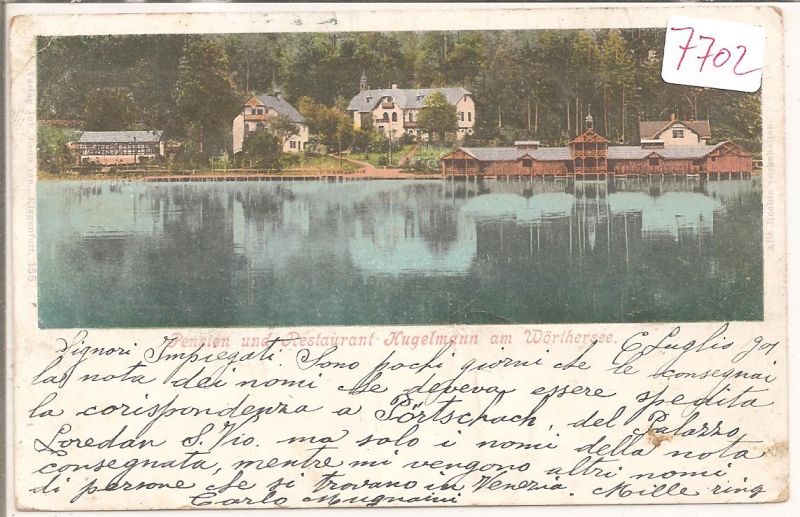 7702
Pension und Restaurant Kugelmann am Wörthersee.
Signori Impiegati 6 Luglio 901
Sono pochi giorni che le consegnai
la nota dei nomi che deveva essere spedita
la corispondenza a Pörtschach, del Palazzo
Loredan S. Vio. ma solo i nomi della nota
consegnata, mentre mi vengono altri nomi
di persone che si trovano in Venezia. Mille ring
Carlo Mugnaini
Alle Rechte vorbehalten.
Klagenfurt. 156